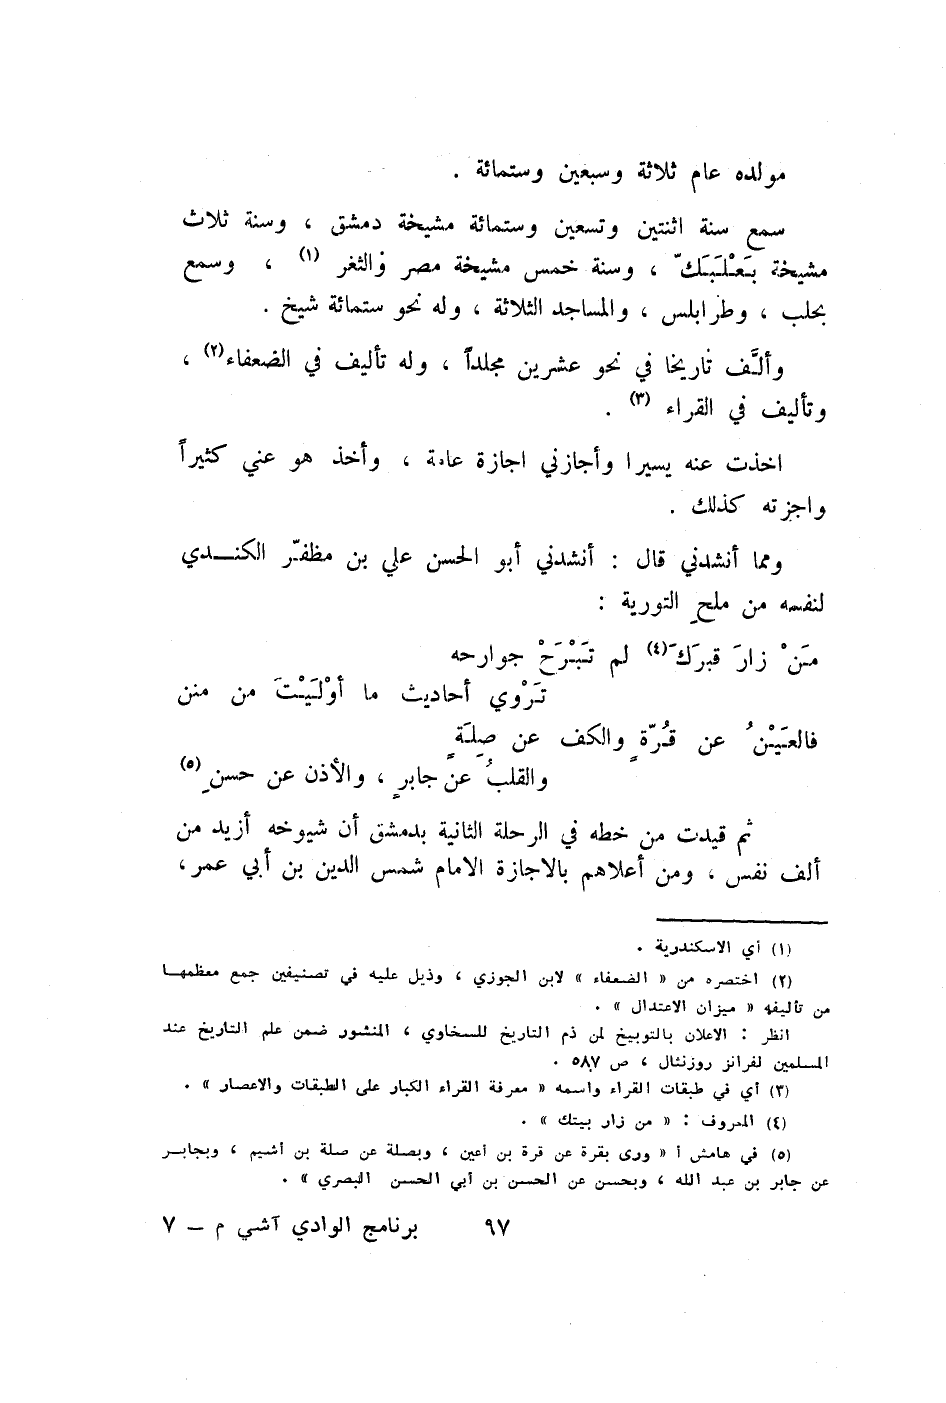 مولده عام ثلاثة وسبعين وستمائة .
سمع سنة اثنتين وتسعين وستمائة مشيخة دمشق ، وسنة ثلاث
مشيخة بَعْلَبَكّ ، وسنة خمس مشيخة مصر والثغر (١) ، وسمع
بحلب ، وطرابلس ، والمساجد الثلاثة ، وله نحو ستمائة شيخ .
وألَّف تاريخا في نحو عشرين مجلداً ، وله تأليف في الضعفاء(٢) ،
وتأليف في القراء (٣) .
اخذت عنه يسيرا وأجازني اجازة عامة ، وأخذ هو عني كثيراً
واجزته كذلك .
ومما أنشدني قال : أنشدني أبو الحسن علي بن مظفّر الكنـــدي
لنفسه من ملحِ التورية :
مَنْ زارَ قبرَكَ(٤) لم تَبْرَحْ جوارحه
تَرْوي أحاديث ما أوْلَيْتَ من منن
فالعَيْنُ عن قُرّةٍ والكف عن صِلَةٍ
والقلبُ عن جابرٍ ، والأذن عن حسنِ (٥)
ثم قيدت من خطه في الرحلة الثانية بدمشق أن شيوخه أزيد من
ألف نفس ، ومن أعلاهم بالاجازة الامام شمس الدين بن أبي عمر ،
(١) أي الاسكندرية .
(٢) اختصره من « الضعفاء » لابن الجوزي ، وذيل عليه في تصنيفين جمع معظمهـا
من تأليفه « ميزان الاعتدال » .
انظر : الاعلان بالتوبيخ لمن ذم التاريخ للسخاوي ، المنشور ضمن علم التاريخ عند
المسلمين لفرانز روزنثال ، ص ٥٨٧ .
(٣) أي في طبقات القراء واسمه « معرفة القراء الكبار على الطبقات والاعصار » .
(٤) المعروف : « من زار بيتك » .
(٥) في هامش أ « ورى بقرة عن قرة بن أعين ، وبصلة عن صلة بن أشيم ، وبجابـر
عن جابر بن عبد الله ، وبحسن عن الحسن بن أبي الحسن البصري » .
٩٧ برنامج الوادي آشي م – ٧